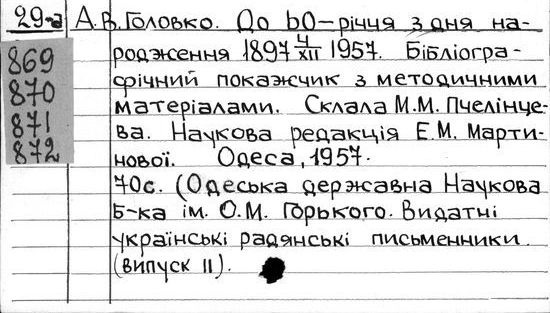 29-а А.В. Головко. До 60-річчя з дня на-
869 родження 1897 4/XII 1957. Бібліогра-
870 фічний покажчик з методичними
871 матеріалами. Склала М.М. Пчелінце-
872 ва. Наукова редакція Е.М. Марти-
нової. Одеса, 1957.
70с. (Одеська державна Наукова
б-ка ім. О.М. Горького. Видатні
українські радянські письменники
(випуск II).